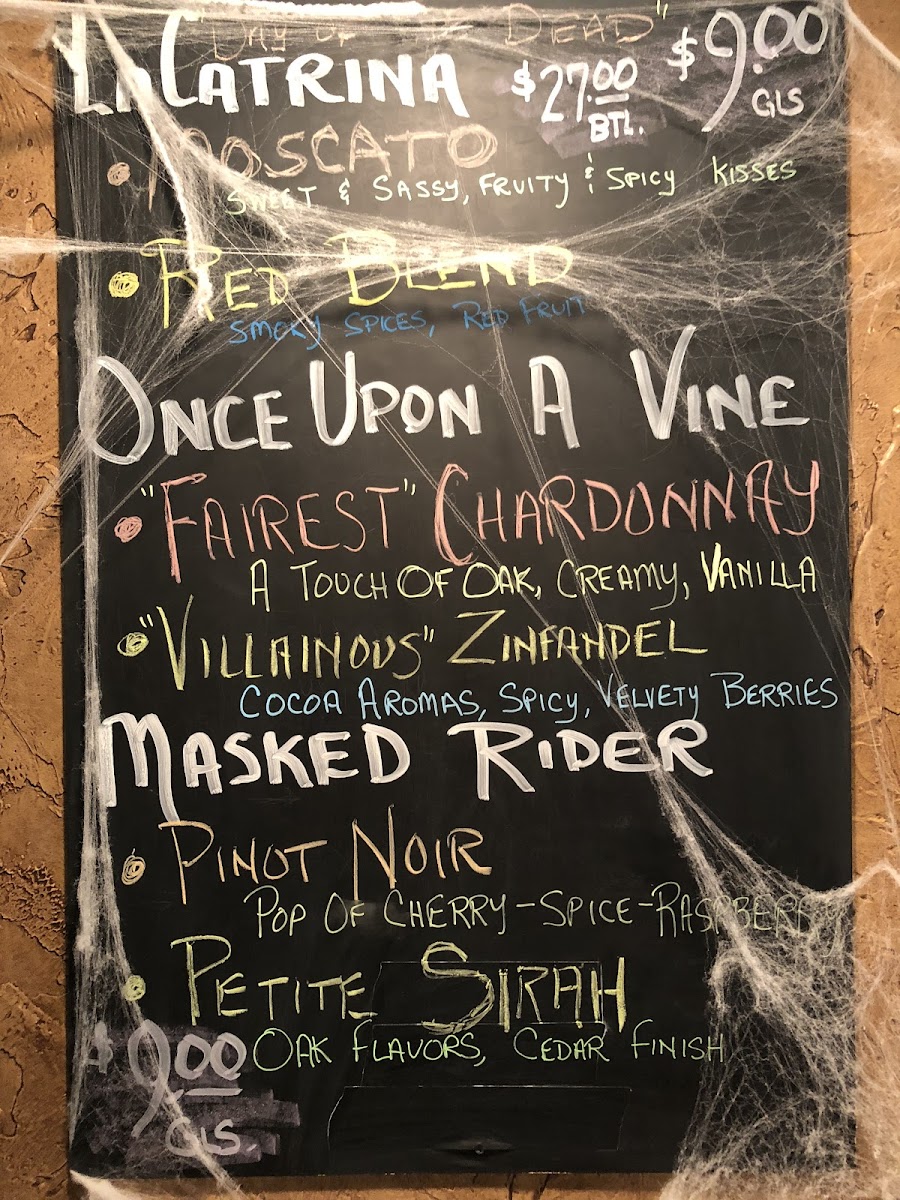 "Day of the Dead"
La Catrina $27.00 BTL. $9.00 GLS
• Moscato
Sweet & Sassy, Fruity & Spicy Kisses
• Red Blend
Smoky Spices, Red Fruit
Once Upon A Vine
• "Fairest" Chardonnay
A Touch Of Oak, Creamy, Vanilla
• "Villainous" Zinfandel
Cocoa Aromas, Spicy, Velvety Berries
Masked Rider
• Pinot Noir
Pop Of Cherry-Spice-Raspberry
• Petite Sirah
Oak Flavors, Cedar Finish
$9.00
GLS.